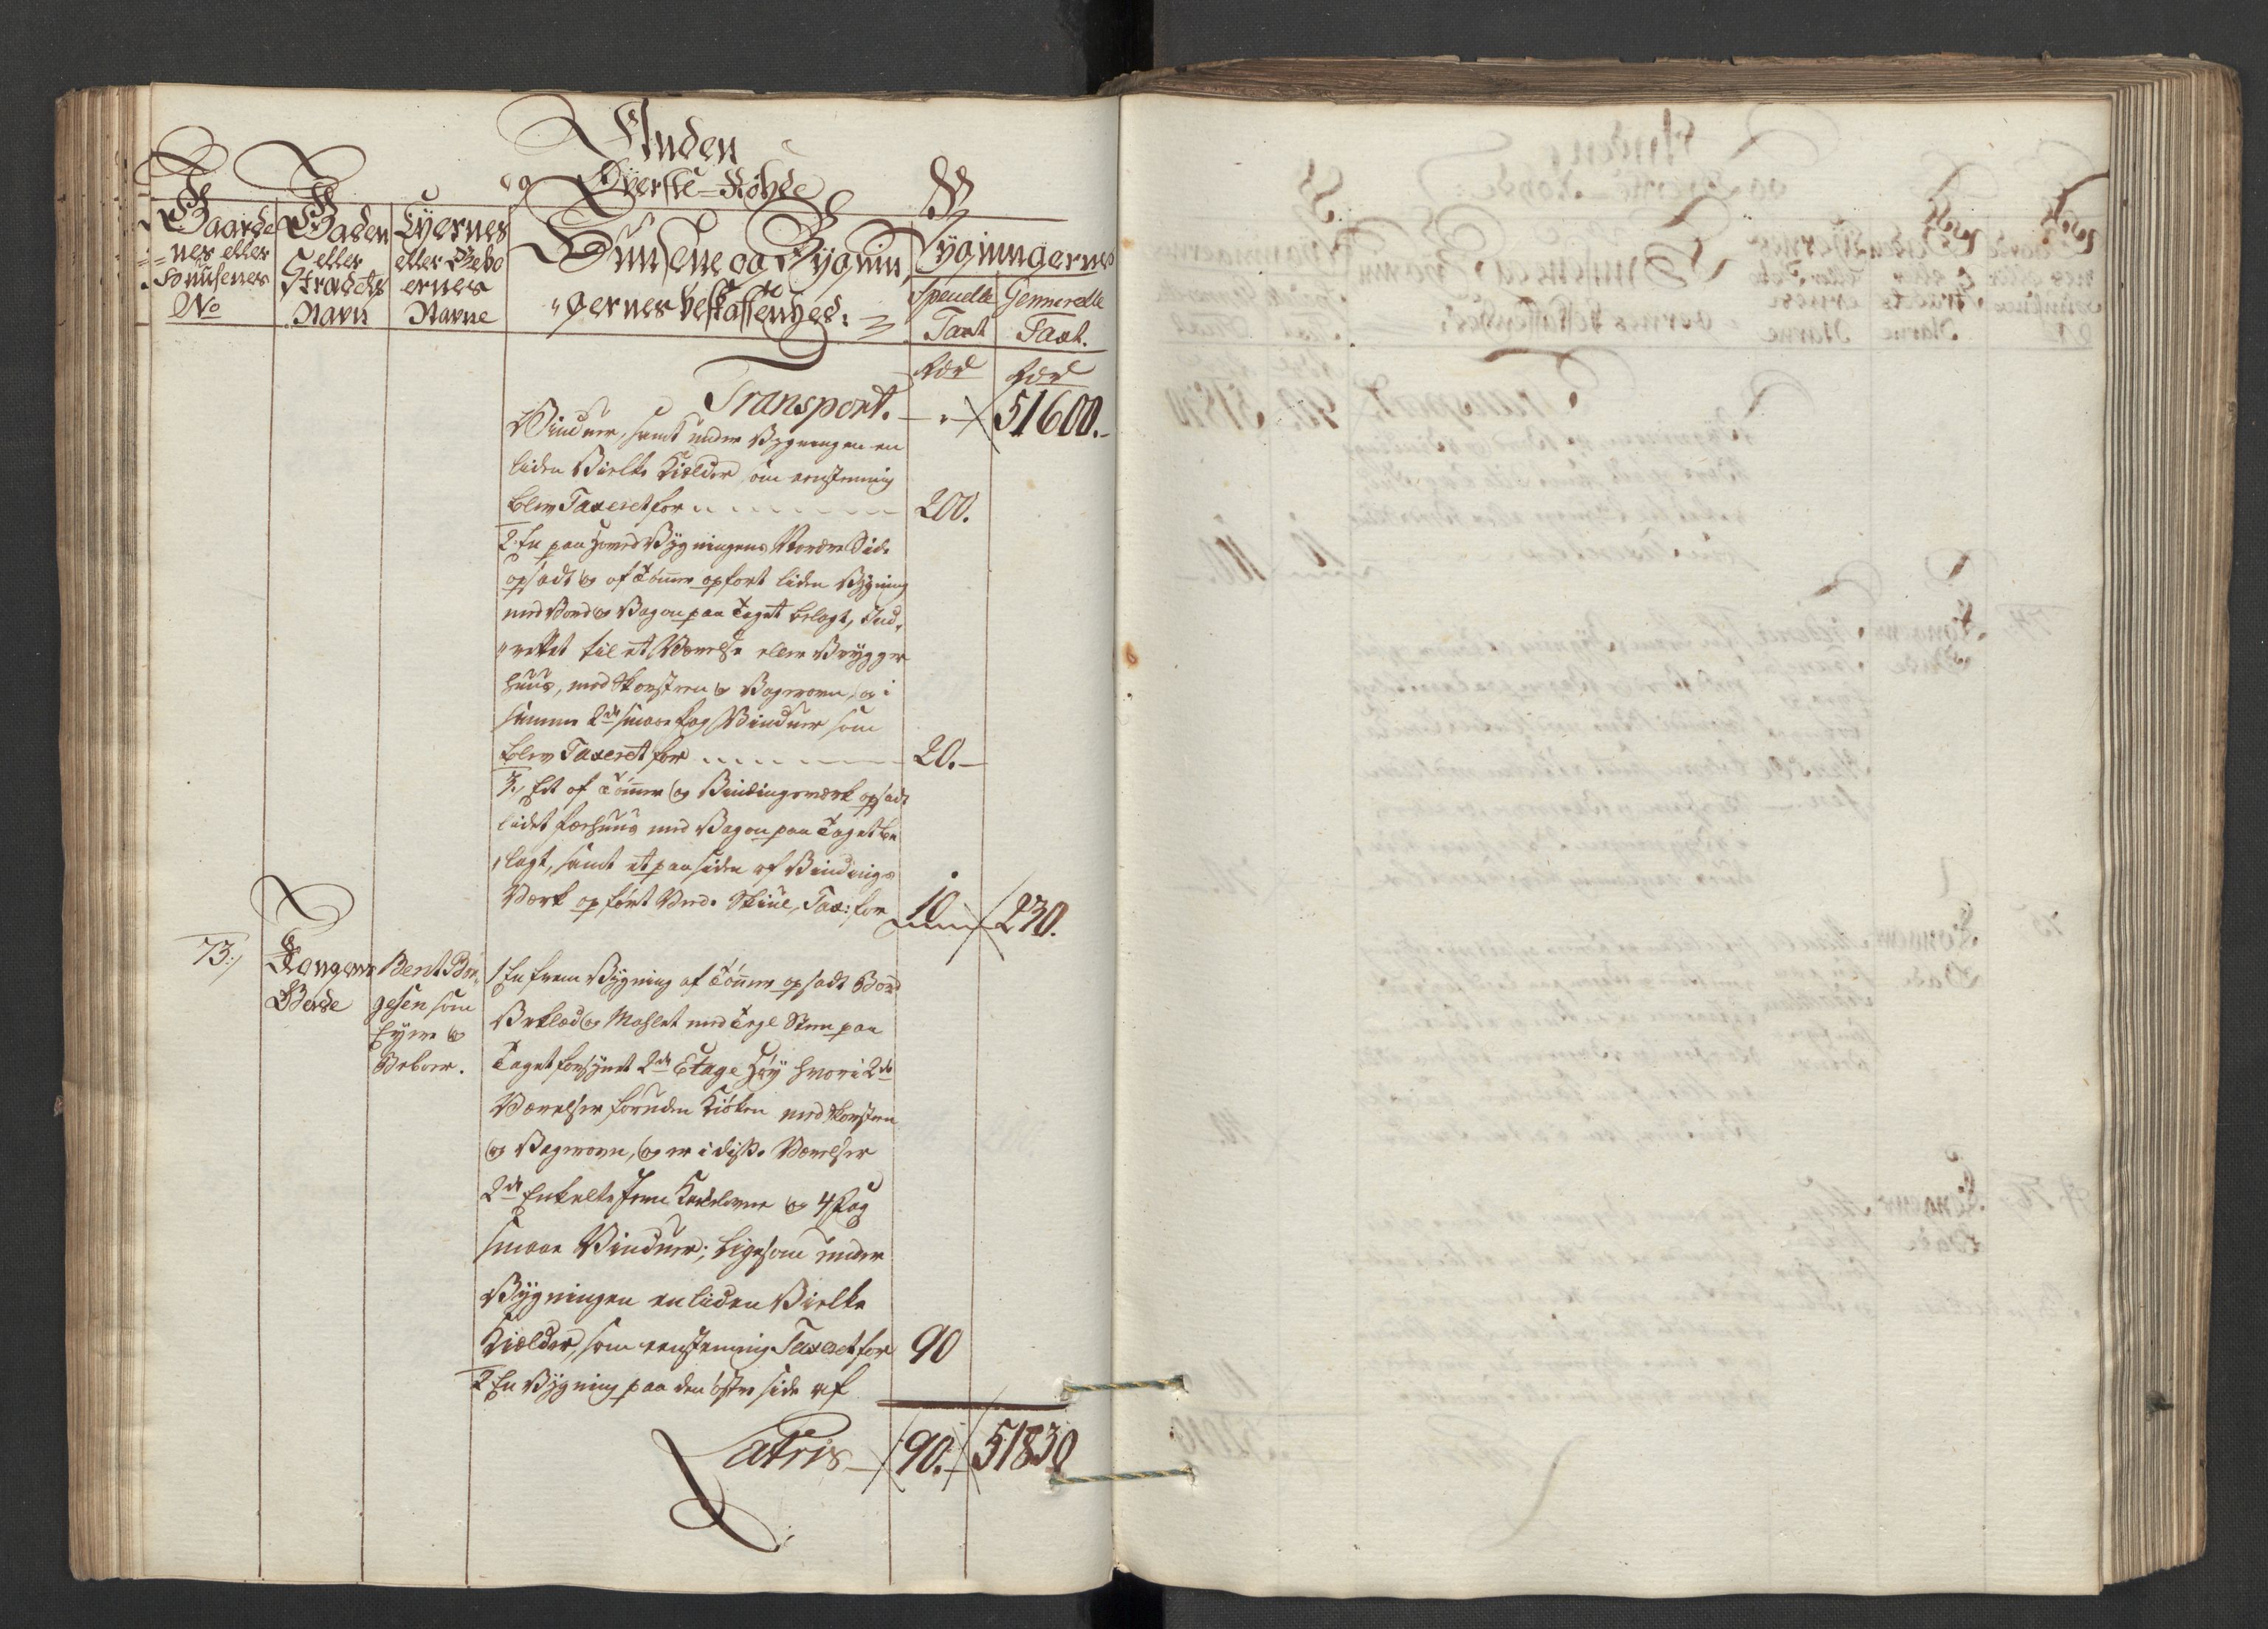 Anden
og Överste-Röhde
Gaarde
nes eller
Huusenes
No
Gaden
eller
Strædets
Navn
Eyernes
eller Bebo
ernes
Navne
Huusene og Bygnin
gernes beskaffenhed:
Bygningernes
Speuelle
Taxt
Gennerelle
Taxt.
Rdr
Rdr
Transport. 51600.
Vinduer, samt under Bygningen en
liden Bielke Kielder, om eenstemmig
blev Taxeret for 200.
2. En paa Hoved Bygningens Nordre Side
opsadt og af Tömer opfört liden Bygning
med Bord og Vagon paa Taget belagt, Ind,
rettet til et Værelse eller Brygger
huus, med Skorsteen og Bagerovn, og i
samme 2de smaae fag Vinduer som
blev Taxeret for 20.
3, Et af Tömer og Bindingsværk opsadt
lidet Fæehuus med Vagon paa Taget be
lagt, samt et paa siden af Bindings
Værk opfört Ved Skiul, Tax: for 10 230.
73,
Kongens
Gade
Bent Bör
gesen som
Eyer og
Beboer.
1 En frem Bygning af Tömer opsadt Bord
Beklæd og Mahlet med Tegl Steen paa
Taget forsÿnet 2de Etage Höÿ hvori 2de
Værelser foruden Kiöken med Skorsteen
og Bagerovn, og er i disse Værelser
2de Enkelte Jern Kakelovne og 4 Fag
smaae Vinduer; ligesom under
Bygningen en liden Bielke
Kielder, som eenstemmig Taxeret for 90
2 En Bygning paa den östre side af
Latris 90. 51830